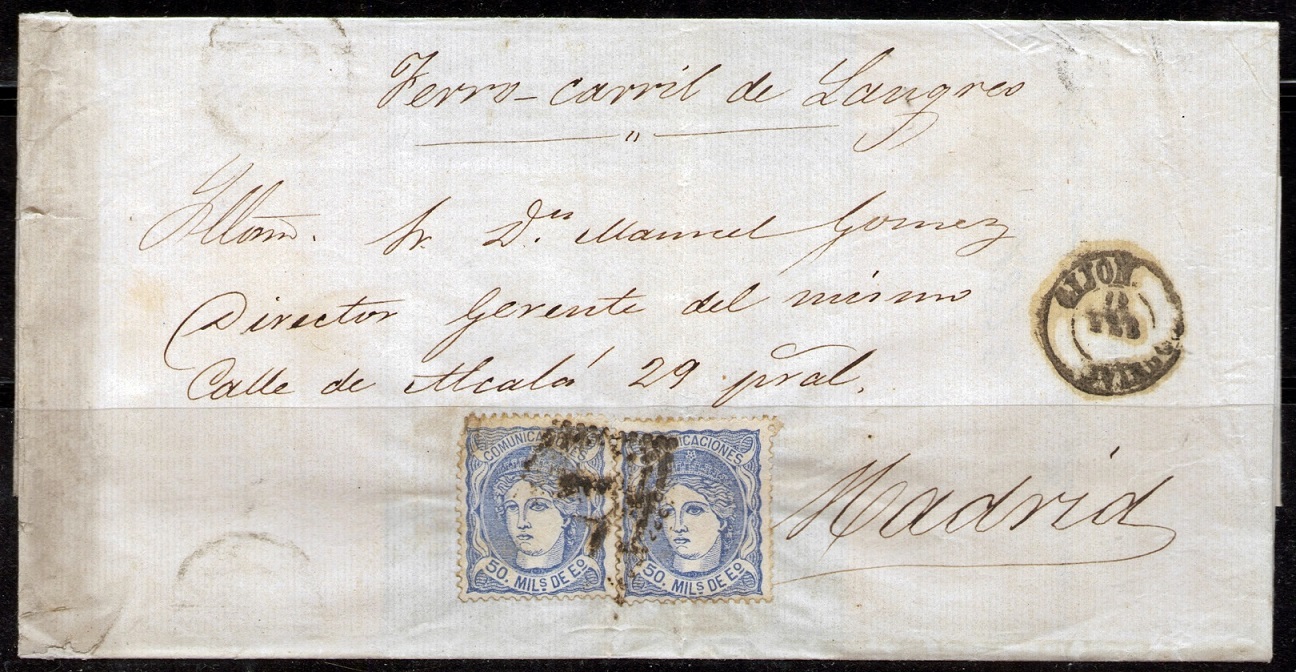 Ferro-carril de Langreo
"
Illmo. Sr. Dn. Manuel Gomez
Director Gerente del mismo
Calle de Alcalá 29 pral.
Madrid
GIJON.
FEB
COMUNICACIONES
50. MILS DE Eo
COMUNICACIONES
50. MILS DE Eo